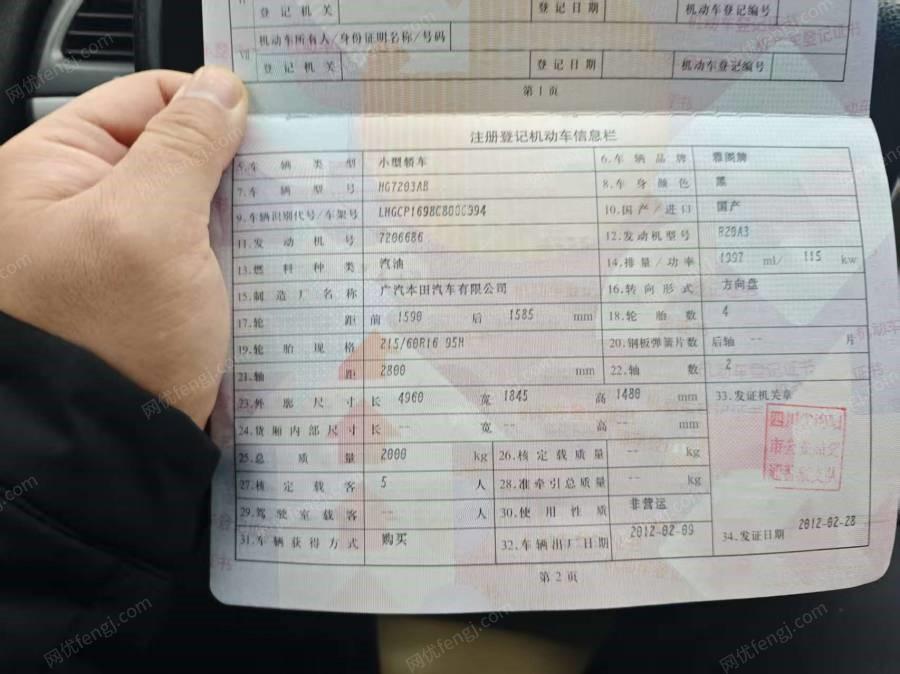 登记机关 登记日期 机动车登记编号
机动车所有人/身份证明名称/号码
登记机关 登记日期 机动车登记编号
第1页
注册登记机动车信息栏
5.车辆类型 小型轿车 6.车辆品牌 雅阁牌
7.车辆型号 HG7203AB 8.车身颜色 黑
9.车辆识别代号/车架号 10.国产/进口 国产
11.发动机号 7206686 12.发动机型号 R20A3
13.燃料种类 汽油 14.排量/功率 1997 ml/ 115 kw
15.制造厂名称 广汽本田汽车有限公司 16.转向形式 方向盘
17.轮距 前 1590 后 1585 mm 18.轮胎数 4
19.轮胎规格 215/60R16 95H 20.钢板弹簧片数 后轴 -- 片
21.轴距 2800 mm 22.轴数 2
23.外廓尺寸 长 4960 宽 1845 高 1480 mm 33.发证机关章
24.货厢内部尺寸 长 -- 宽 -- 高 -- mm
25.总质量 2000 kg 26.核定载质量 -- kg
27.核定载客 5 人 28.准牵引总质量 -- kg
29.驾驶室载客 -- 人 30.使用性质 非营运
31.车辆获得方式 购买 32.车辆出厂日期 2012-02-09 34.发证日期 2012-02-28
第2页
网优fengj.com